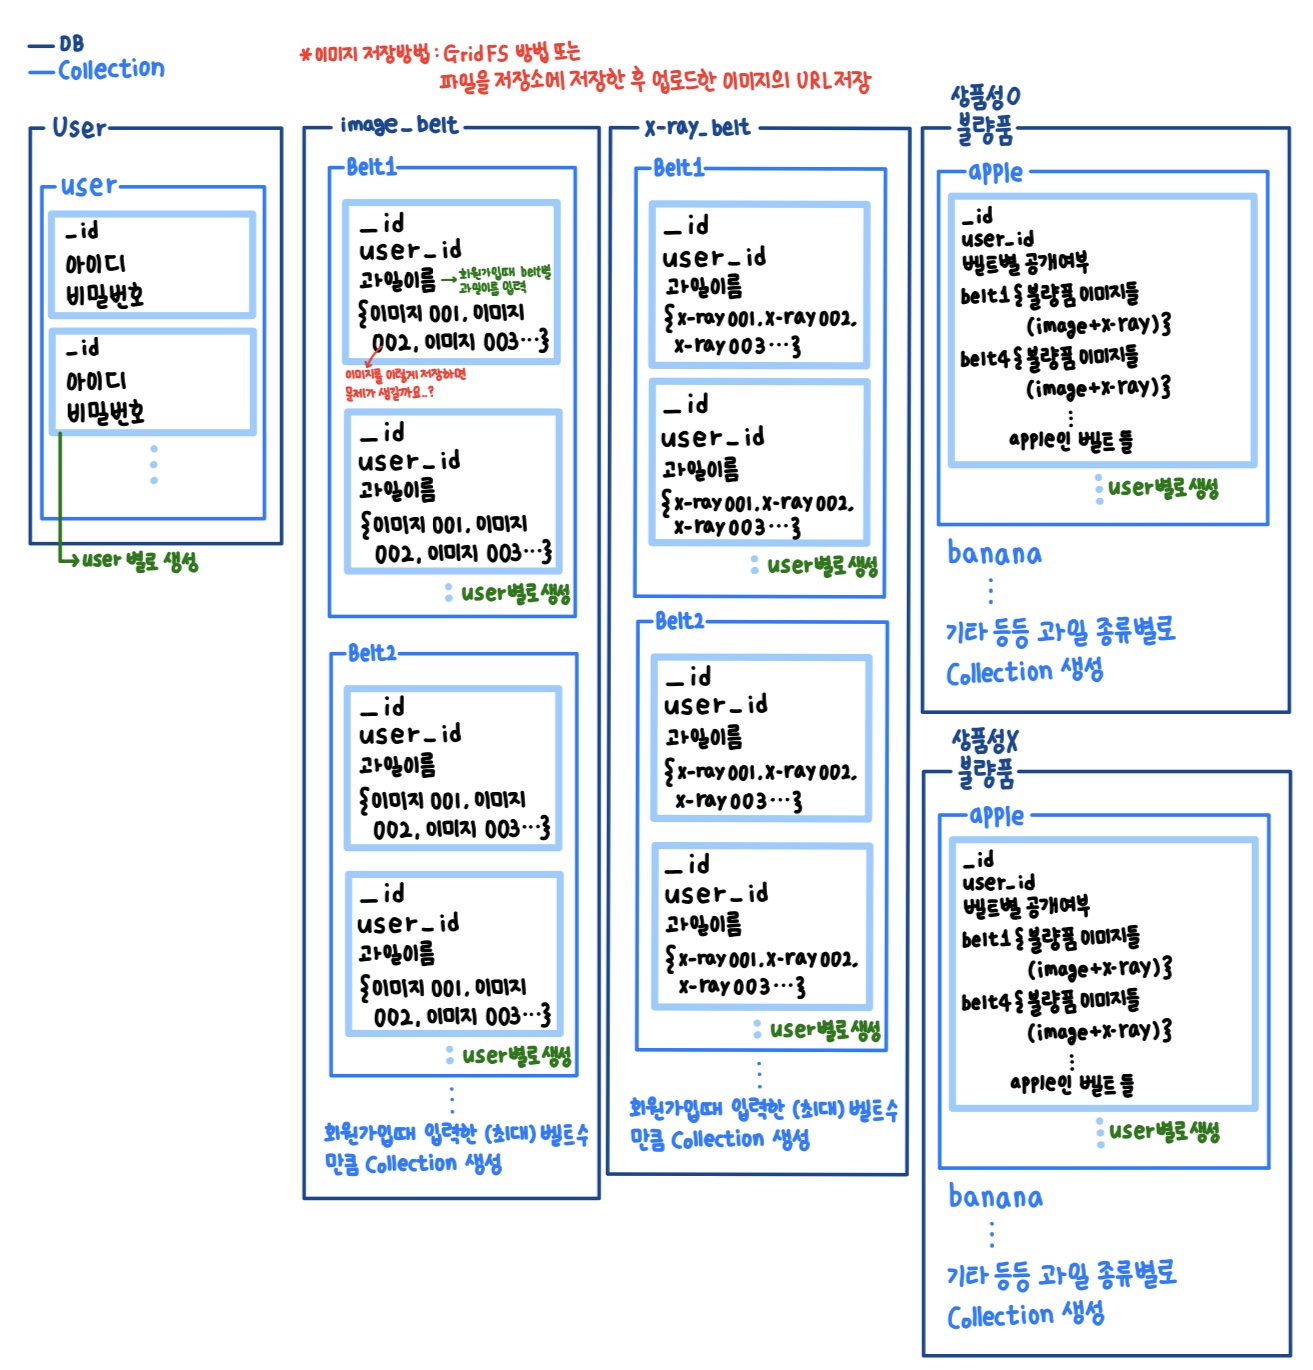 DB
Collection
*이미지 저장방법 : GridFS 방법 또는
파일을 저장소에 저장한 후 업로드한 이미지의 URL저장
User
user
_id
아이디
비밀번호
_id
아이디
비밀번호
user 별로 생성
image_belt
Belt1
_id
user_id
과일이름
회원가입때 belt별
과일이름 입력
{이미지 001, 이미지
002, 이미지 003…}
이미지를 이렇게 저장하면
문제가 생길까요..?
_id
user_id
과일이름
{이미지 001, 이미지
002, 이미지 003…}
user별로생성
Belt2
_id
user_id
과일이름
{이미지 001, 이미지
002, 이미지 003…}
_id
user_id
과일이름
{이미지 001, 이미지
002, 이미지 003…}
user별로생성
회원가입때 입력한 (최대) 벨트수
만큼 Collection 생성
X-ray_belt
Belt1
_id
user_id
과일이름
{x-ray001, x-ray002,
x-ray003…}
_id
user_id
과일이름
{x-ray001, x-ray002,
x-ray003…}
user별로생성
Belt2
_id
user_id
과일이름
{x-ray001, x-ray002,
x-ray003…}
_id
user_id
과일이름
{x-ray001, x-ray002,
x-ray003…}
user별로생성
회원가입때 입력한 (최대) 벨트수
만큼 Collection 생성
상품성O
불량품
apple
_id
user_id
벨트별 공개여부
belt1{불량품 이미지들
(image+x-ray)}
belt4{불량품 이미지들
(image+x-ray)}
apple인 벨트들
user별로생성
banana
기타 등등 과일 종류별로
Collection 생성
상품성X
불량품
apple
_id
user_id
벨트별 공개여부
belt1{불량품 이미지들
(image+x-ray)}
belt4{불량품 이미지들
(image+x-ray)}
apple인 벨트들
user별로생성
banana
기타 등등 과일 종류별로
Collection 생성